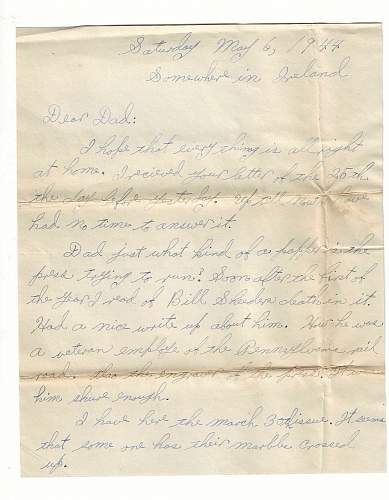 Saturday May 6, 1944
Somewhere in Ireland
Dear Dad:
I hope that every thing is all right
at home. I recieved your letter of the 25th
the day before yesterday. Up till now I have
had no time to answer it.
Dad just what kind of a paper is the
press trying to run? Soon after the first of
the year I read of Bill death in it.
Had a nice write up about him. How he was
a veteran employe of the Pennsylvania rail
road. the of the
him shure enough.
I have here the march 30 issue. It seems
that some one has their marbles crossed
up.